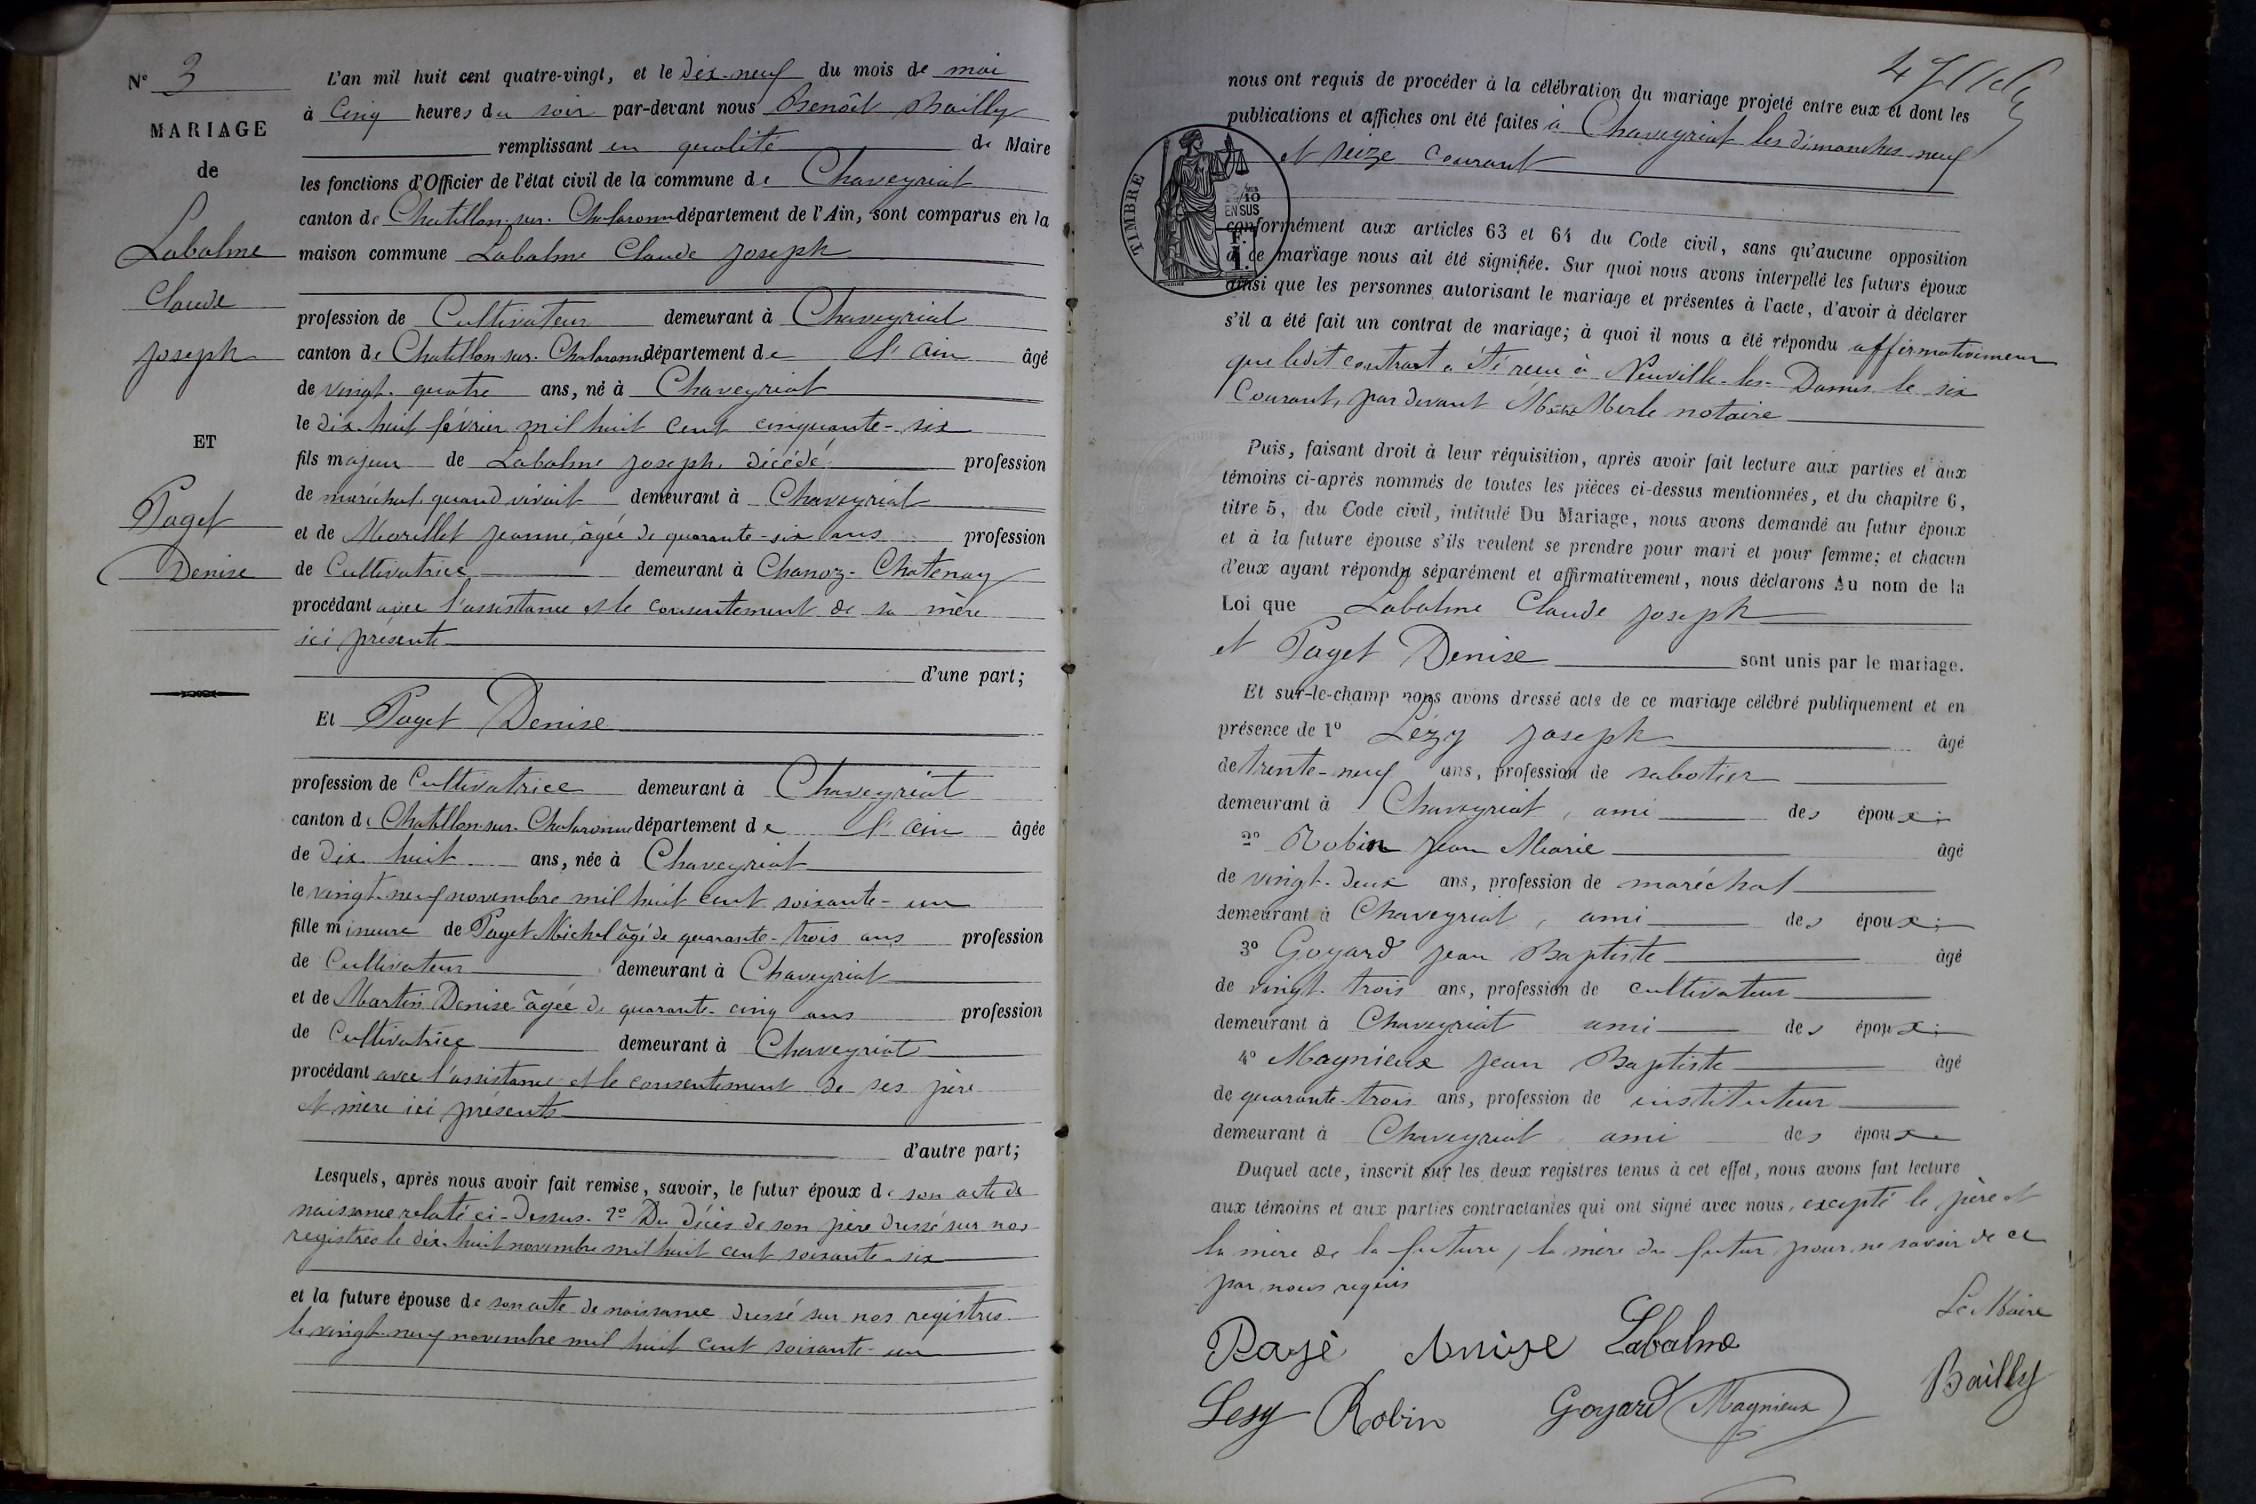 N° 3
MARIAGE
de
Labalme
Claude
Joseph
ET
Paget
Denise
L'an mil huit cent quatre-vingt, et le dix-neuf du mois de mai
à cinq heures du soir par-devant nous Benoît Bailly
remplissant en qualité de Maire
les fonctions d'Officier de l'état civil de la commune de Chaveyriat
canton de Chatillon-sur-Chalaronne département de l'Ain, sont comparus en la
maison commune Labalme Claude Joseph
profession de Cultivateur demeurant à Chaveyriat
canton de Chatillon-sur-Chalaronne département de l'Ain âgé
de vingt-quatre ans, né à Chaveyriat
le dix-huit février mil huit cent cinquante-six
fils majeur de Labalme Joseph, décédé profession
de maréchal, quand vivait demeurant à Chaveyriat
et de Morillet Jeanne, âgée de quarante-six ans profession
de Cultivatrice demeurant à Chanoz-Chatenay
procédant avec l'assistance et le consentement de sa mère
ici présente
d'une part;
Et Paget Denise
profession de Cultivatrice demeurant à Chaveyriat
canton de Chatillon-sur-Chalaronne département de l'Ain âgée
de dix-huit ans, née à Chaveyriat
le vingt-neuf novembre mil huit cent soixante-un
fille mineure de Paget Michel âgé de quarante-trois ans profession
de Cultivateur demeurant à Chaveyriat
et de Martin Denise âgée de quarante-cinq ans profession
de Cultivatrice demeurant à Chaveyriat
procédant avec l'assistance et le consentement de ses père
et mère ici présents
d'autre part;
Lesquels, après nous avoir fait remise, savoir, le futur époux de son acte de
naissance relaté ci-dessus. 2° Du décès de son père dressé sur nos
registres le dix-huit novembre mil huit cent soixante-six
et la future épouse de son acte de naissance dressé sur nos registres
le vingt-neuf novembre mil huit cent soixante-un
nous ont requis de procéder à la célébration du mariage projeté entre eux et dont les
publications et affiches ont été faites à Chaveyriat les dimanches neuf
et seize courant
TIMBRE
2/10
EN SUS
F.
1.
conformément aux articles 63 et 64 du Code civil, sans qu'aucune opposition
à ce mariage nous ait été signifiée. Sur quoi nous avons interpellé les futurs époux
ainsi que les personnes autorisant le mariage et présentes à l'acte, d'avoir à déclarer
s'il a été fait un contrat de mariage; à quoi il nous a été répondu affirmativement
que ledit contrat a été reçu à Neuville-les-Dames le six
Courant, par devant Merle notaire
Puis, faisant droit à leur réquisition, après avoir fait lecture aux parties et aux
témoins ci-après nommés de toutes les pièces ci-dessus mentionnées, et du chapitre 6,
titre 5, du Code civil, intitulé Du Mariage, nous avons demandé au futur époux
et à la future épouse s'ils veulent se prendre pour mari et pour femme; et chacun
d'eux ayant répondu séparément et affirmativement, nous déclarons Au nom de la
Loi que Labalme Claude Joseph
et Paget Denise sont unis par le mariage.
Et sur-le-champ nous avons dressé acte de ce mariage célébré publiquement et en
présence de 1° Lézy Joseph âgé
de trente-neuf ans, profession de sabotier
demeurant à Chaveyriat, ami des époux;
2° Robin Jean Marie âgé
de vingt-deux ans, profession de maréchal
demeurant à Chaveyriat, ami des époux;
3° Goyard Jean Baptiste âgé
de vingt-trois ans, profession de cultivateur
demeurant à Chaveyriat ami des époux;
4° Magnieux Jean Baptiste âgé
de quarante-trois ans, profession de instituteur
demeurant à Chaveyriat ami des époux
Duquel acte, inscrit sur les deux registres tenus à cet effet, nous avons fait lecture
aux témoins et aux parties contractantes qui ont signé avec nous, excepté le père et
la mère de la future, la mère du futur pour ne savoir de ce
par nous requis
Le Maire
Pajé Denise Labalme
Bailly
Lesy Robin Goyard Magnieux